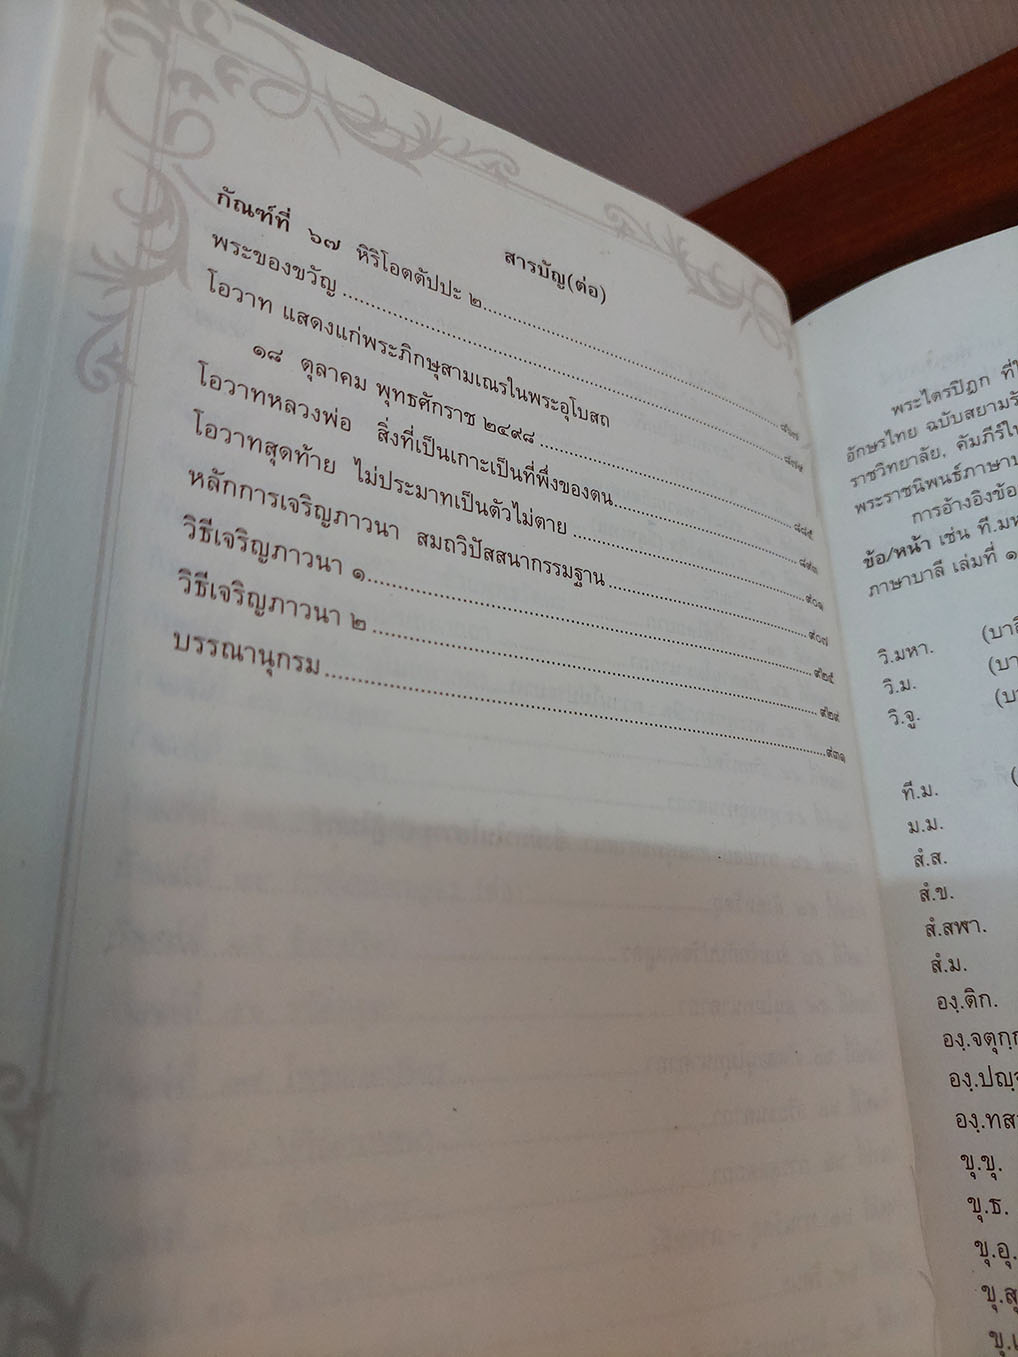 สารบัญ(ต่อ)
กัณฑ์ที่ ๖๗ หิริโอตตัปปะ ๒ ๘๖๗
พระของขวัญ ๘๗๕
โอวาท แสดงแก่พระภิกษุสามเณรในพระอุโบสถ
๑๘ ตุลาคม พุทธศักราช ๒๔๙๘ ๘๘๕
โอวาทหลวงพ่อ สิ่งที่เป็นเกาะเป็นที่พึ่งของตน ๘๙๓
โอวาทสุดท้าย ไม่ประมาทเป็นตัวไม่ตาย ๙๐๑
หลักการเจริญภาวนา สมถวิปัสสนากรรมฐาน ๙๐๗
วิธีเจริญภาวนา ๑ ๙๒๕
วิธีเจริญภาวนา ๒ ๙๒๙
บรรณานุกรม ๙๓๑
พระไตรปิฎก ที่
อักษรไทย ฉบับสยามรั
ราชวิทยาลัย, คัมภีร์ใน
พระราชนิพนธ์ภาษาบ
การอ้างอิงข้อ
ข้อ/หน้า เช่น ที.มห
ภาษาบาลี เล่มที่ ๑
วิ.มหา. (บาลี
วิ.ม. (บา
วิ.จู. (บ
ที.ม. (
ม.ม.
สํ.ส.
สํ.ข.
สํ.สฬา.
สํ.ม.
องฺ.ติก.
องฺ.จตุกฺก
องฺ.ปญฺจ
องฺ.ทส
ขุ.ขุ.
ขุ.ธ.
ขุ.อุ.
ขุ.สุ
ขุ.เ